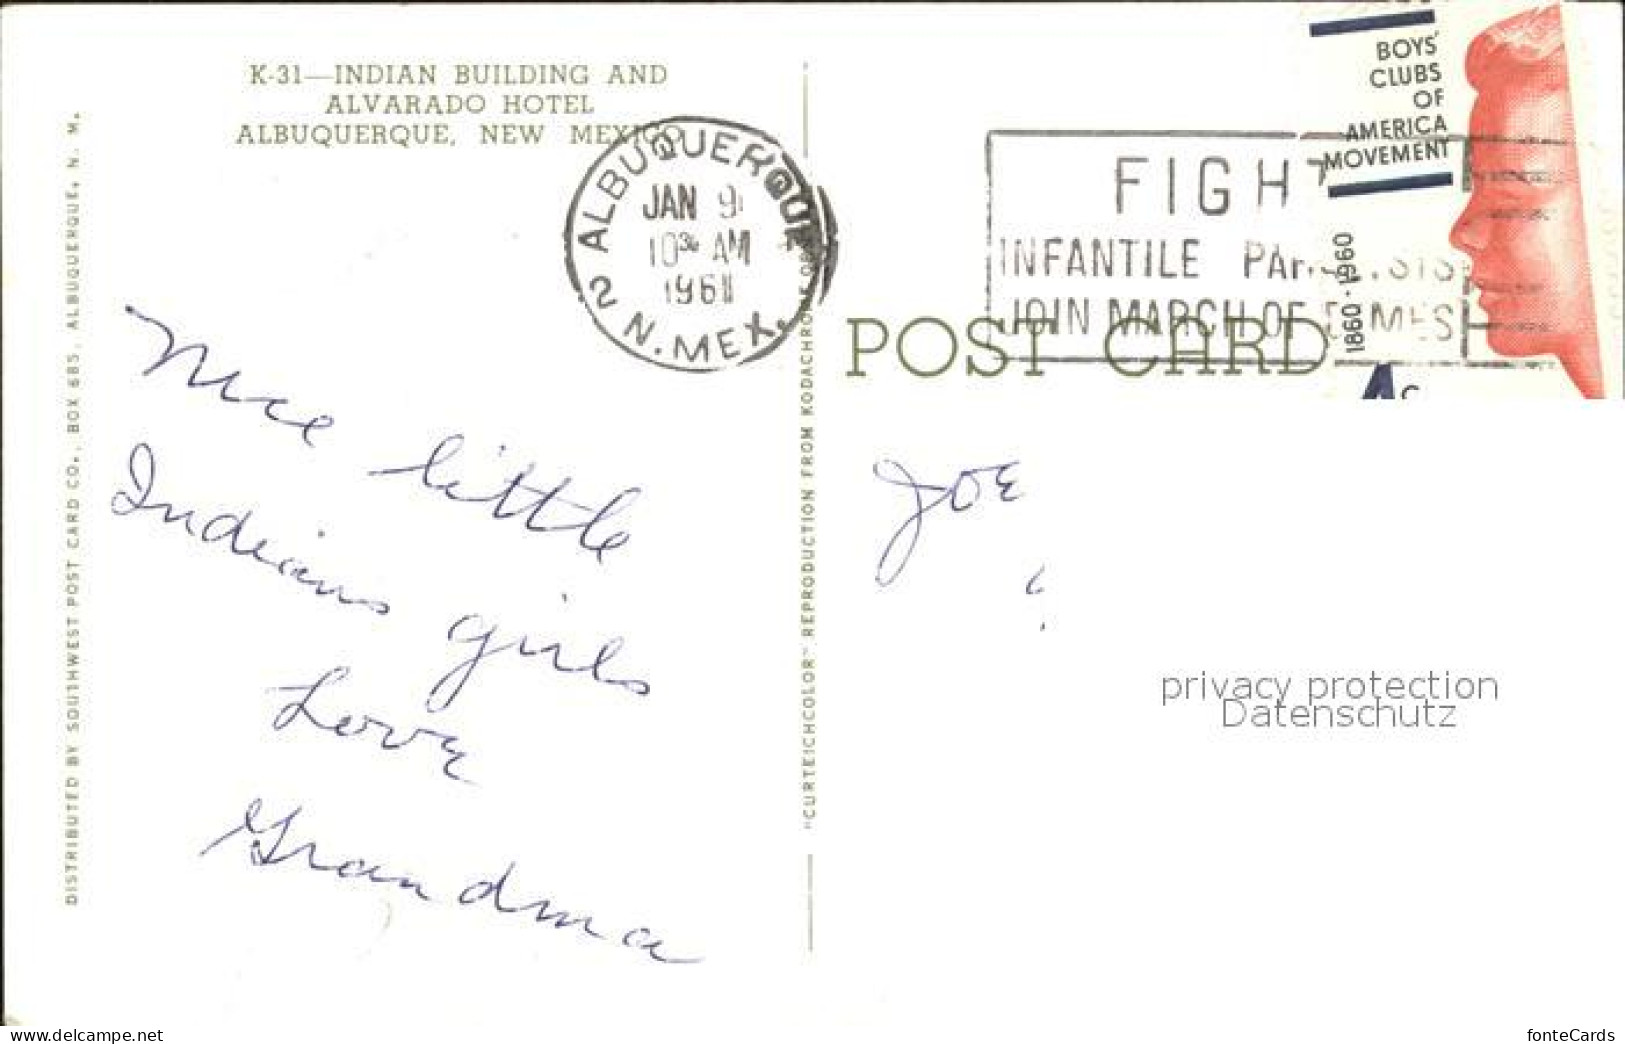 K-31—INDIAN BUILDING AND
ALVARADO HOTEL
ALBUQUERQUE, NEW MEXICO
DISTRIBUTED BY SOUTHWEST POST CARD CO., BOX 685, ALBUQUERQUE, N. M.
ALBUQUERQUE
JAN 9
10 30 AM
1961
2 N. MEX.
Nice little
Indians girls
Love
Grandma
"CURTEICHCOLOR" REPRODUCTION FROM KODACHROME
BOYS'
CLUBS
OF
AMERICA
MOVEMENT
1860·1960
4c
FIGHT
INFANTILE PARALYSIS
JOIN MARCH OF DIMES
POST CARD
Joe
privacy protection
Datenschutz
www.delcampe.net
fonteCards